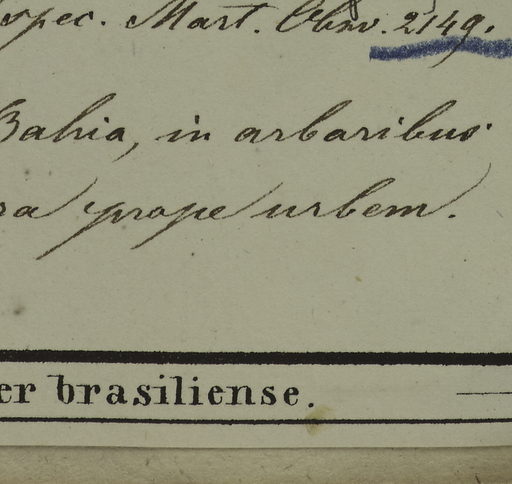 spec. Mart. Obsv. 2149.
Bahia, in arboribus
ra prope urbem.
er brasiliense.